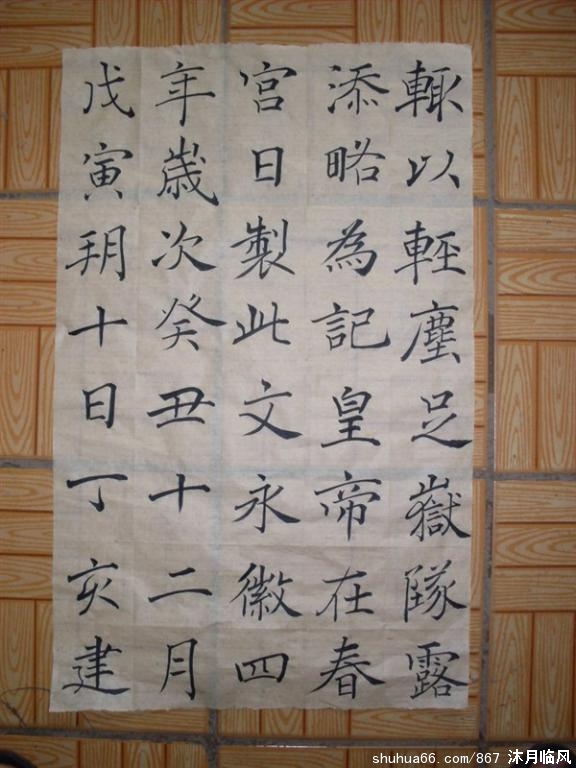 輙以輕塵足嶽隊露
添略為記皇帝在春
宮日製此文永徽四
年歲次癸丑十二月
戊寅朔十日丁亥建
shuhua66.com/867 沐月临风